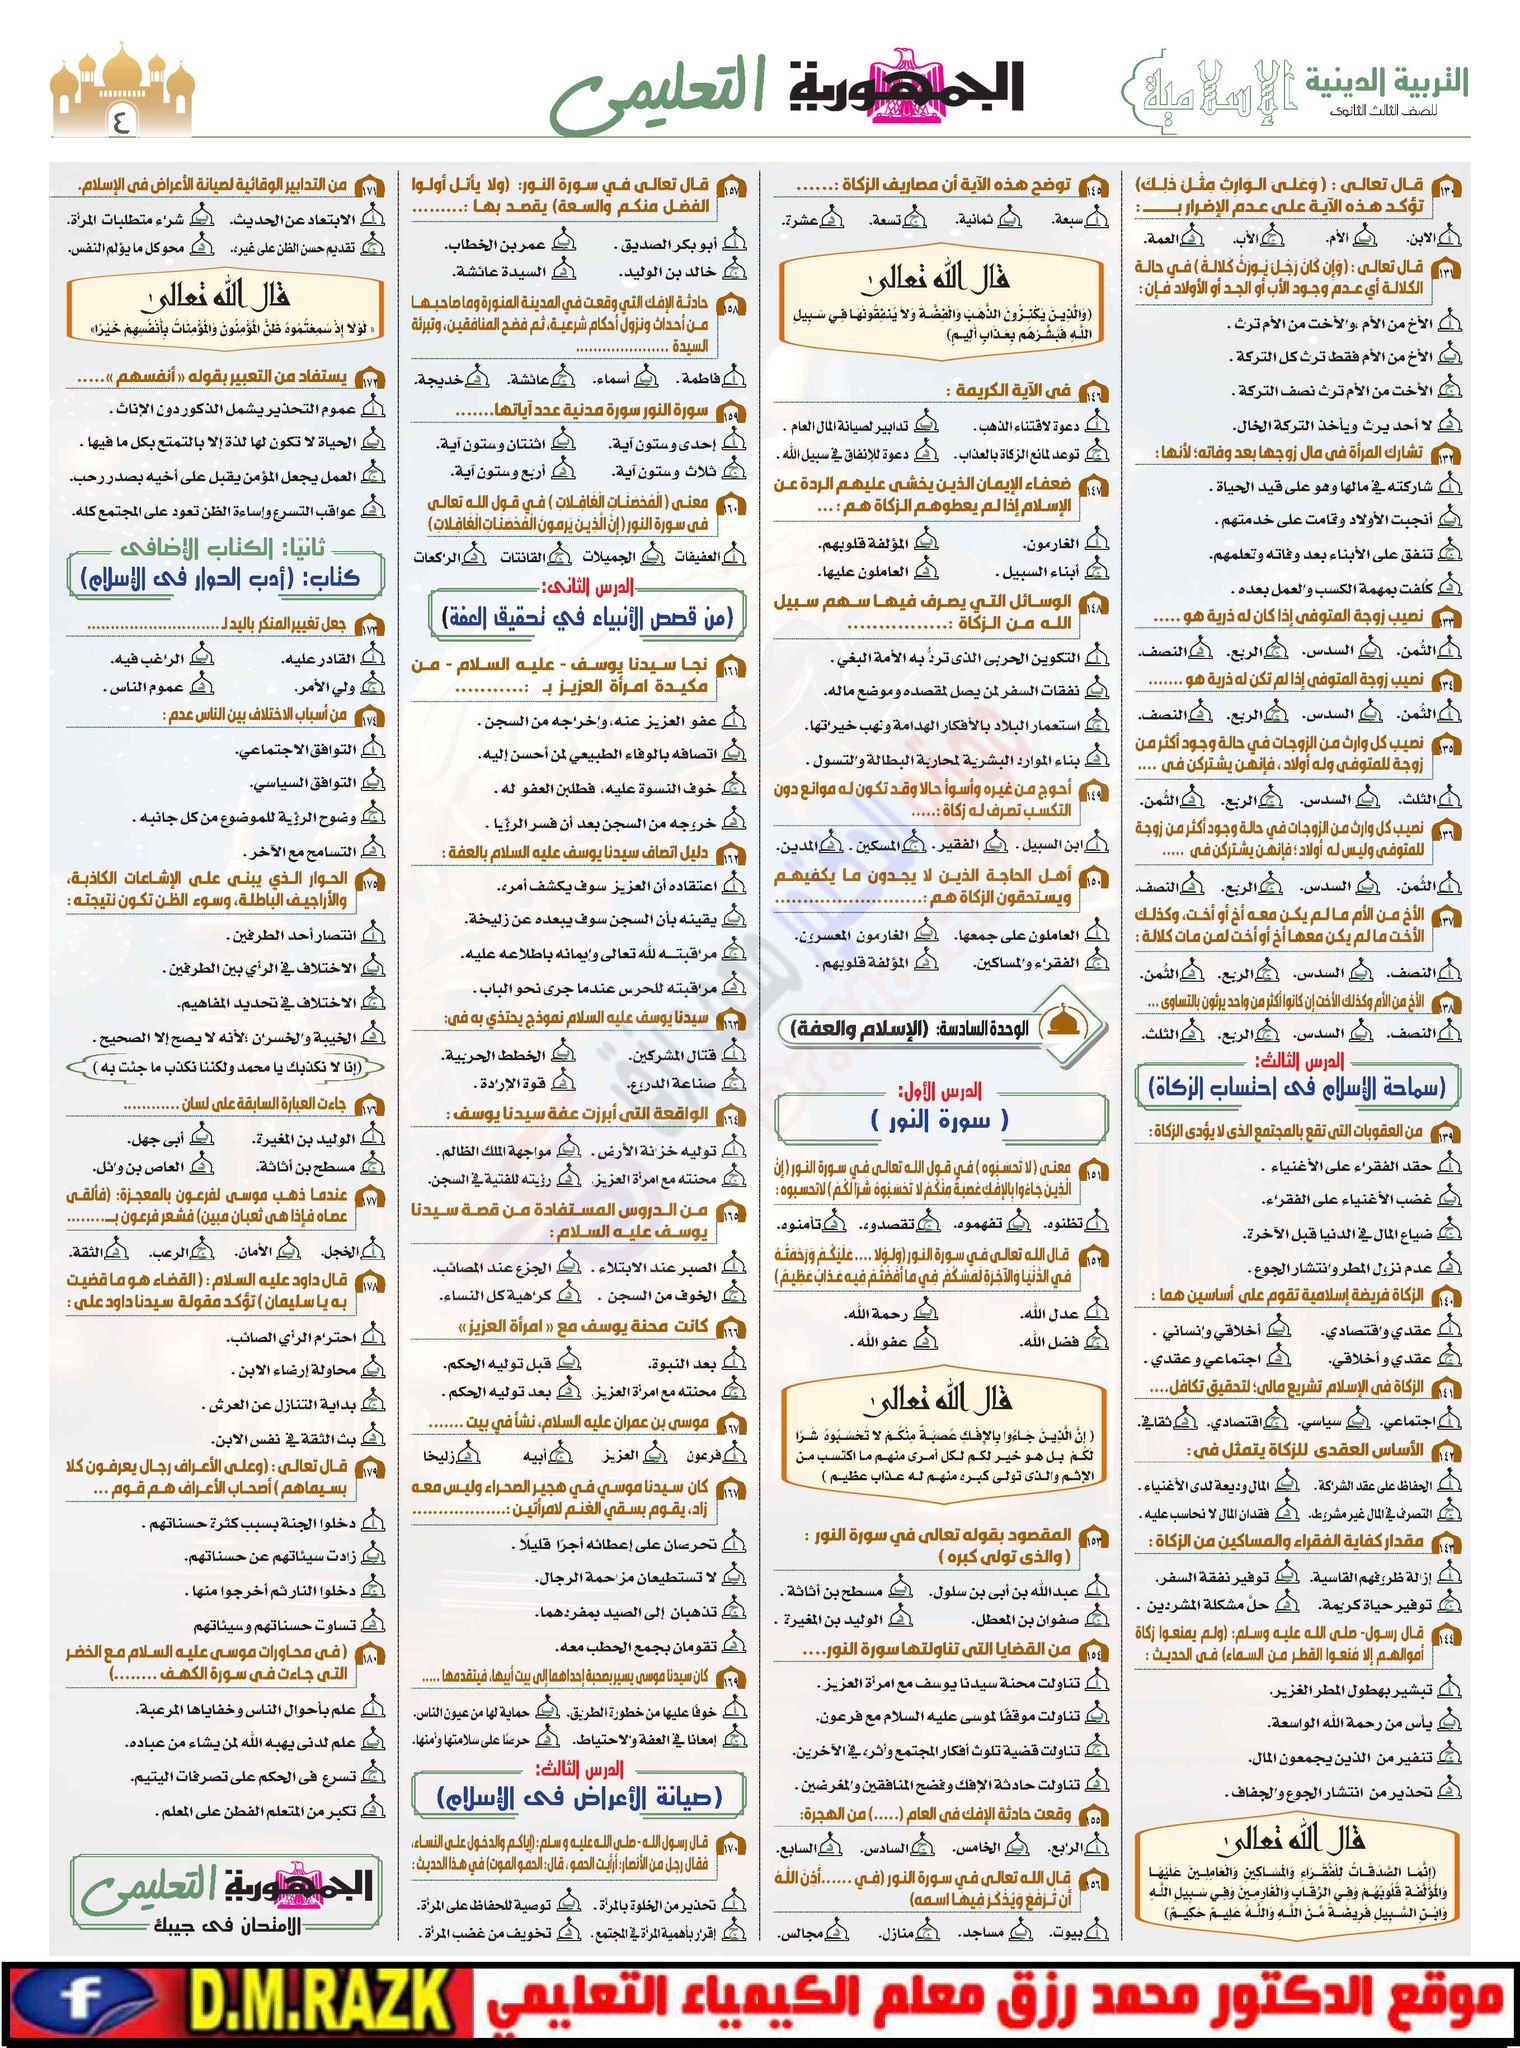 التربية الدينية الإسلامية
للصف الثالث الثانوى
الجمهورية التعليمى
٤
١٣٠ قال تعالى : ( وَعَلَى الوَارِثِ مِثْلُ ذَلِكَ)
تؤكد هذه الآية على عدم الإضرار بـــــ :
أ الابن. ب الأم. ج الأب. د العمة.
١٣١ قال تعالى : (وَإِن كَانَ رَجُلٌ يُورَثُ كَلَالَةً ) في حالة
الكلالة أي عدم وجود الأب أو الجد أو الأولاد فإن :
أ الأخ من الأم ،والأخت من الأم ترث .
ب الأخ من الأم فقط ترث كل التركة .
ج الأخت من الأم ترث نصف التركة .
د لا أحد يرث ويأخذ التركة الخال.
١٣٢ تشارك المرأة فى مال زوجها بعد وفاته؛ لأنها :
أ شاركته في مالها وهو على قيد الحياة .
ب أنجبت الأولاد وقامت على خدمتهم .
ج تنفق على الأبناء بعد وفاته وتعلمهم.
د كُلفت بمهمة الكسب والعمل بعده .
١٣٣ نصيب زوجة المتوفى إذا كان له ذرية هو .....
أ الثُمن. ب السدس. ج الربع. د النصف.
١٣٤ نصيب زوجة المتوفى إذا لم تكن له ذرية هو .......
أ الثُمن. ب السدس. ج الربع. د النصف.
١٣٥ نصيب كل وارث من الزوجات في حالة وجود أكثر من
زوجة للمتوفى وله أولاد ، فإنهن يشتركن فى ....
أ الثلث. ب السدس. ج الربع. د الثُمن.
١٣٦ نصيب كل وارث من الزوجات في حالة وجود أكثر من زوجة
للمتوفى وليس له أولاد ؛ فإنهن يشتركن في .....
أ الثُمن. ب السدس. ج الربع. د النصف.
١٣٧ الأخ من الأم ما لم يكن معه أخ أو أخت، وكذلك
الأخت ما لم يكن معها أخ أو أخت لمن مات كلالة :
أ النصف. ب السدس. ج الربع. د الثُمن.
١٣٨ الأخ من الأم وكذلك الأخت إن كانوا أكثر من واحد يرثون بالتساوى ...
أ النصف. ب السدس. ج الربع. د الثلث.
الدرس الثالث:
(سماحة الإسلام فى احتساب الزكاة)
١٣٩ من العقوبات التى تقع بالمجتمع الذى لا يؤدى الزكاة :
أ حقد الفقراء على الأغنياء .
ب غضب الأغنياء على الفقراء.
ج ضياع المال في الدنيا قبل الآخرة.
د عدم نزول المطر وانتشار الجوع .
١٤٠ الزكاة فريضة إسلامية تقوم على أساسين هما :
أ عقدي واقتصادي. ب أخلاقي وإنساني .
ج عقدي وأخلاقي. د اجتماعي وعقدي .
١٤١ الزكاة فى الإسلام تشريع مالى؛ لتحقيق تكافل....
أ اجتماعي. ب سياسي. ج اقتصادي. د ثقافي.
١٤٢ الأساس العقدى للزكاة يتمثل فى :
أ الحفاظ على عقد الشراكة . ب المال وديعة لدى الأغنياء .
ج التصرف في المال غير مشروط. د فقدان المال لا نحاسب عليه .
١٤٣ مقدار كفاية الفقراء والمساكين من الزكاة :
أ إزالة ظروفهم القاسية. ب توفير نفقة السفر.
ج توفير حياة كريمة. د حلّ مشكلة المشردين .
١٤٤ قال رسول- صلى الله عليه وسلم: (ولم يمنعوا زكاة
أموالهم إلا مُنعوا القطر من السماء) فى الحديث :
أ تبشير بهطول المطر الغزير.
ب يأس من رحمة الله الواسعة.
ج تنفير من الذين يجمعون المال.
د تحذير من انتشار الجوع والجفاف .
قال الله تعالى
(إِنَّمَا الصَّدَقَاتُ لِلْفُقَرَاءِ وَالْمَسَاكِينِ وَالْعَامِلِينَ عَلَيْهَا
وَالْمُؤَلَّفَةِ قُلُوبُهُمْ وَفِي الرِّقَابِ وَالْغَارِمِينَ وَفِي سَبِيلِ اللَّهِ
وَابْنِ السَّبِيلِ فَرِيضَةً مِّنَ اللَّهِ وَاللَّهُ عَلِيمٌ حَكِيمٌ)
١٤٥ توضح هذه الآية أن مصاريف الزكاة :......
أ سبعة. ب ثمانية. ج تسعة. د عشرة.
قال الله تعالى
(وَالَّذِينَ يَكْنِزُونَ الذَّهَبَ وَالْفِضَّةَ وَلَا يُنفِقُونَهَا فِي سَبِيلِ
اللَّهِ فَبَشِّرْهُم بِعَذَابٍ أَلِيمٍ)
١٤٦ فى الآية الكريمة :
أ دعوة لاقتناء الذهب . ب تدابير لصيانة المال العام .
ج توعد لمانع الزكاة بالعذاب . د دعوة للإنفاق في سبيل الله .
١٤٧ ضعفاء الإيمان الذين يخشى عليهم الردة عن
الإسلام إذا لم يعطوهم الزكاة هم : ...
أ الغارمون. ب المؤلفة قلوبهم.
ج أبناء السبيل . د العاملون عليها.
١٤٨ الوسائل التي يصرف فيها سهم سبيل
الله من الزكاة :...............
أ التكوين الحربى الذى تردُّ به الأمة البغي .
ب نفقات السفر لمن يصل لمقصده وموضع ماله.
ج استعمار البلاد بالأفكار الهدامة ونهب خيراتها.
د بناء الموارد البشرية لمحاربة البطالة والتسول .
١٤٩ أحوج من غيره وأسوأ حالا وقد تكون له موانع دون
التكسب تصرف له زكاة :.....
أ ابن السبيل . ب الفقير . ج المسكين . د المدين.
١٥٠ أهل الحاجة الذين لا يجدون ما يكفيهم
ويستحقون الزكاة هم :.........................
أ العاملون على جمعها. ب الغارمون المعسرون.
ج الفقراء والمساكين. د المؤلفة قلوبهم .
الوحدة السادسة: (الإسلام والعفة)
الدرس الأول:
( سورة النور )
١٥١ معنى ( لا تحسبوه ) في قول الله تعالى في سورة النور ( إِنَّ
الَّذِينَ جَاءُوا بِالْإِفْكِ عُصْبَةٌ مِنْكُمْ لا تَحْسَبُوهُ شَرًّا لَكُمْ ) لاتحسبوه :
أ تظنوه. ب تفهموه. ج تقصدوه. د تأمنوه.
١٥٢ قال الله تعالى في سورة النور (وَلَوْلا .... عَلَيْكُمْ وَرَحْمَتُهُ
فِي الدُّنْيَا وَالْآخِرَةِ لَمَسَّكُمْ فِي مَا أَفَضْتُمْ فِيهِ عَذَابٌ عَظِيمٌ)
أ عدل الله. ب رحمة الله.
ج فضل الله. د عفو الله .
قال الله تعالى
( إِنَّ الَّذِينَ جَاءُوا بِالإِفْكِ عُصْبَةٌ مِنْكُمْ لَا تَحْسَبُوهُ شَرًّا
لَكُمْ بل هو خير لكم لكل امرئ منهم ما اكتسب من
الإثم والذى تولى كبره منهم له عذاب عظيم )
١٥٣ المقصود بقوله تعالى في سورة النور :
( والذى تولى كبره )
أ عبدالله بن أبى بن سلول. ب مسطح بن أثاثة .
ج صفوان بن المعطل. د الوليد بن المغيرة .
١٥٤ من القضايا التى تناولتها سورة النور....
أ تناولت محنة سيدنا يوسف مع امرأة العزيز.
ب تناولت موقفًا لموسى عليه السلام مع فرعون.
ج تناولت قضية تلوث أفكار المجتمع وأثره في الآخرين.
د تناولت حادثة الإفك وفضح المنافقين والمغرضين .
١٥٥ وقعت حادثة الإفك فى العام (.....) من الهجرة:
أ الرابع. ب الخامس. ج السادس. د السابع.
١٥٦ قال الله تعالى في سورة النور (في ......أَذِنَ اللَّهُ
أَن تُرْفَعَ وَيُذْكَرَ فِيهَا اسمه)
أ بيوت. ب مساجد. ج منازل. د مجالس.
١٥٧ قال تعالى في سورة النور: (ولا يأتل أولوا
الفضل منكم والسعة) يقصد بها :.........
أ أبو بكر الصديق . ب عمر بن الخطاب.
ج خالد بن الوليد. د السيدة عائشة.
١٥٨ حادثة الإفك التي وقعت في المدينة المنورة وما صاحبها
من أحداث ونزول أحكام شرعية، ثم فضح المنافقين، وتبرئة
السيدة .....................
أ فاطمة. ب أسماء. ج عائشة. د خديجة.
١٥٩ سورة النور سورة مدنية عدد آياتها.......
أ إحدى وستون آية. ب اثنتان وستون آية.
ج ثلاث وستون آية. د أربع وستون آية.
١٦٠ معنى ( المُحْصَنَاتِ الْغَافِلَاتِ ) في قول الله تعالى
فى سورة النور ( إِنَّ الَّذِينَ يَرمونَ المُحْصَنَاتِ الغَافِلاتِ)
أ العفيفات ب الجميلات ج القانتات د الراكعات
الدرس الثانى:
(من قصص الأنبياء في تحقيق العفة)
١٦١ نجا سيدنا يوسف - عليه السلام - من
مكيدة امرأة العزيز بـ :...........
أ عفو العزيز عنه، وإخراجه من السجن .
ب اتصافه بالوفاء الطبيعي لمن أحسن إليه.
ج خوف النسوة عليه، فطلبن العفو له .
د خروجه من السجن بعد أن فسر الرؤيا .
١٦٢ دليل اتصاف سيدنا يوسف عليه السلام بالعفة :
أ اعتقاده أن العزيز سوف يكشف أمره.
ب يقينه بأن السجن سوف يبعده عن زليخة.
ج مراقبته لله تعالى وإيمانه باطلاعه عليه.
د مراقبته للحرس عندما جرى نحو الباب .
١٦٣ سيدنا يوسف عليه السلام نموذج يحتذي به فى:
أ قتال المشركين. ب الخطط الحربية.
ج صناعة الدروع. د قوة الإرادة.
١٦٤ الواقعة التى أبرزت عفة سيدنا يوسف :
أ توليه خزانة الأرض . ب مواجهة الملك الظالم .
ج محنته مع امرأة العزيز. د رؤيته للفتية في السجن.
١٦٥ من الدروس المستفادة من قصة سيدنا
يوسف عليه السلام :
أ الصبر عند الابتلاء . ب الجزع عند المصائب.
ج الخوف من السجن . د كراهية كل النساء.
١٦٦ كانت محنة يوسف مع « امرأة العزيز»
أ بعد النبوة. ب قبل توليه الحكم.
ج محنته مع امرأة العزيز. د بعد توليه الحكم .
١٦٧ موسى بن عمران عليه السلام، نشأ في بيت .......
أ فرعون ب العزيز ج أبيه د زليخا
١٦٧ كان سيدنا موسي في هجير الصحراء وليس معه
زاد، يقوم بسقي الغنم لامرأتين:..................
أ تحرصان على إعطائه أجرًا قليلًا .
ب لا تستطيعان مزاحمة الرجال.
ج تذهبان إلى الصيد بمفردهما.
د تقومان بجمع الحطب معه.
١٦٩ كان سيدنا موسى يسير بصحبة إحداهما إلى بيت أبيها، فيتقدمها .....
أ خوفًا عليها من خطورة الطريق. ب حماية لها من عيون الناس.
ج إمعانا في العفة والاحتياط. د حرصًا على سلامتها وأمنها.
الدرس الثالث:
(صيانة الأعراض فى الإسلام)
١٧٠ قال رسول الله - صلى الله عليه و سلم: (إياكم والدخول على النساء،
فقال رجل من الأنصار: أرأيت الحمو ، قال: الحمو الموت) في هذا الحديث :
أ تحذير من الخلوة بالمرأة . ب توصية للحفاظ على المرأة.
ج إقرار بأهمية المرأة في المجتمع. د تخويف من غضب المرأة .
١٧١ من التدابير الوقائية لصيانة الأعراض فى الإسلام.
أ الابتعاد عن الحديث. ب شراء متطلبات المرأة.
ج تقديم حسن الظن على غيره. د محو كل ما يؤلم النفس.
قال الله تعالى
« لَوْلَا إِذْ سَمِعْتُمُوهُ ظَنَّ الْمُؤْمِنُونَ وَالْمُؤْمِنَاتُ بِأَنْفُسِهِمْ خَيْرًا»
١٧٢ يستفاد من التعبير بقوله « أنفسهم ».....
أ عموم التحذير يشمل الذكور دون الإناث .
ب الحياة لا تكون لها لذة إلا بالتمتع بكل ما فيها .
ج العمل يجعل المؤمن يقبل على أخيه بصدر رحب.
د عواقب التسرع وإساءة الظن تعود على المجتمع كله.
ثانيًا: الكتاب الإضافى
كتاب: (أدب الحوار فى الإسلام)
١٧٣ جعل تغيير المنكر باليد لـ ...........................
أ القادر عليه. ب الراغب فيه.
ج ولي الأمر. د عموم الناس .
١٧٤ من أسباب الاختلاف بين الناس عدم :
أ التوافق الاجتماعي.
ب التوافق السياسي.
ج وضوح الرؤية للموضوع من كل جانبه .
د التسامح مع الآخر.
١٧٥ الحوار الذي يبنى على الإشاعات الكاذبة،
والأراجيف الباطلة، وسوء الظن تكون نتيجته :
أ انتصار أحد الطرفين.
ب الاختلاف في الرأي بين الطرفين .
ج الاختلاف في تحديد المفاهيم.
د الخيبة والخسران ؛لأنه لا يصح إلا الصحيح .
(إنا لا نكذبك يا محمد ولكننا نكذب ما جئت به )
١٧٦ جاءت العبارة السابقة على لسان ............
أ الوليد بن المغيرة. ب أبى جهل.
ج مسطح بن أثاثة. د العاص بن وائل.
١٧٧ عندما ذهب موسى لفرعون بالمعجزة: (فألقى
عصاه فإذا هى ثعبان مبين) فشعر فرعون بـ.........
أ الخجل. ب الأمان. ج الرعب. د الثقة.
١٧٨ قال داود عليه السلام : ( القضاء هو ما قضيت
به يا سليمان ) تؤكد مقولة سيدنا داود على :
أ احترام الرأي الصائب.
ب محاولة إرضاء الابن .
ج بداية التنازل عن العرش .
د بث الثقة في نفس الابن.
١٧٩ قال تعالى : (وعلى الأعراف رجال يعرفون كلا
بسيماهم ) أصحاب الأعراف هم قوم ...
أ دخلوا الجنة بسبب كثرة حسناتهم .
ب زادت سيئاتهم عن حسناتهم.
ج دخلوا النار ثم أخرجوا منها .
د تساوت حسناتهم وسيئاتهم
١٨٠ ( في محاورات موسى عليه السلام مع الخضر
التي جاءت في سورة الكهف ........)
أ علم بأحوال الناس وخفاياها المرعبة.
ب علم لدنى يهبه الله لمن يشاء من عباده.
ج تسرع فى الحكم على تصرفات اليتيم.
د تكبر من المتعلم الفطن على المعلم .
الجمهورية التعليمى
الامتحان فى جيبك
موقع الدكتور محمد رزق معلم الكيمياء التعليمي D.M.RAZK f